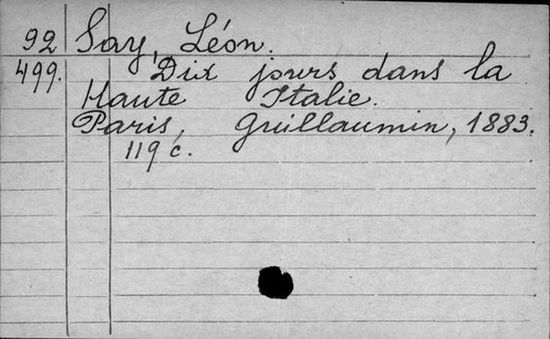 92 Say, Léon.
499. Dix jours dans la
Haute Italie.
Paris, Guillaumin, 1883.
119 c.